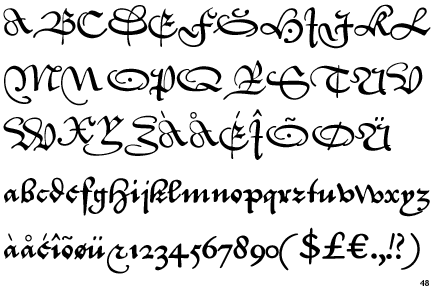 A B C D E F G H I J K L
M N O P Q R S T U V
W X Y Z À Å É Î Õ Ø Ü
abcdefghijklmnopqrstuvwxyz
àåéîõøü 1234567890($£€.,!?)
48